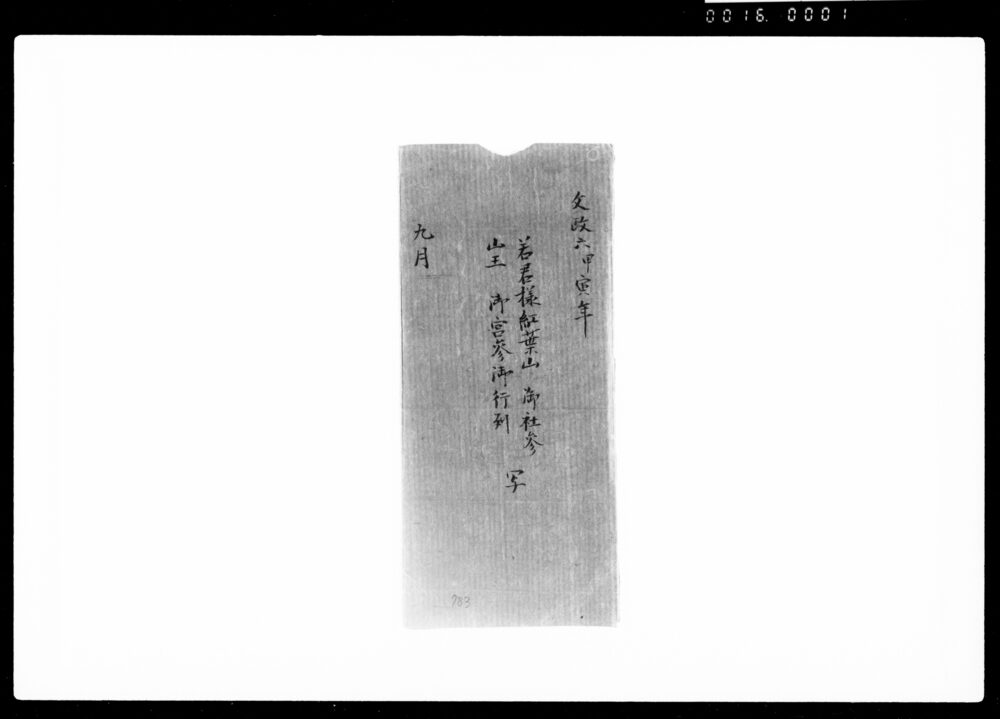 0016. 0001
文政六甲寅年
若君様紅葉山 御社参
山王 御宮参御行列
写
九月
783